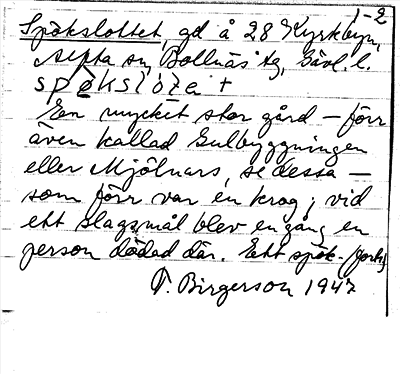 1-2
Spökslottet, gd å 28 Kyrkbyn,
Alfta sn, Bollnäs tg, Gävl. l.
spøkslòtet
En mycket stor gård – förr
även kallad Gulbyggningen
eller Mjölnars, se dessa –
som förr var en krog; vid
ett slagsmål blev en gång en
person dödad där. Ett spök- (forts)
T. Birgerson 1947